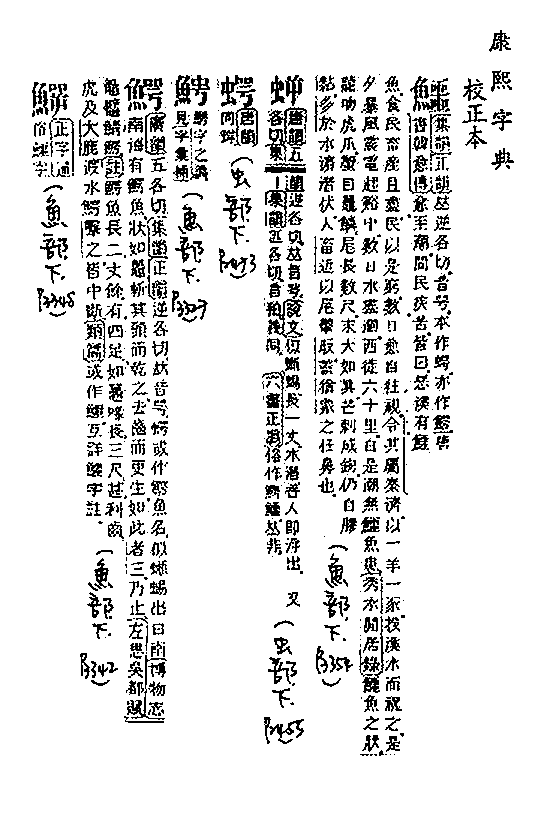 康熙字典
校正本
鱷 集韻正韻𠀤逆各切音咢本作亦作鰐唐
書韓愈傳愈至潮問民疾苦皆曰惡溪有鱷
魚食民畜產且盡民以是窮數日愈自往視令其屬秦濟以一羊一豕投溪水而祝之是
夕暴風震電起谿中數日水盡涸西徙六十里自是潮無鱷魚患秀水閒居錄鱷魚之狀
龍吻虎爪蟹目鼉鱗尾長數尺末大如箕芒刺成鉤仍自膠
黏多於水濱潛伏人畜近以尾擊取蓋猶象之任鼻也
(魚部下.P3354)
唐韻五
各切集
韻逆各切𠀤音咢說文似蜥蜴長一丈水潛吞人即浮出 又
集韻逆各切音義同 六書正譌俗作鱷𠀤非
(虫部下.P2455)
唐韻
同
(虫部下.P2473)
字之譌
見字彙補
(魚部下.P3327)
鰐 唐韻五各切集韻正韻逆各切𠀤音咢或作鰐魚名似蜥蜴出日南博物志
南海有鰐魚狀如鼉斬其頭而乾之去齒而更生如此者三乃止左思吳都賦
鰐註鰐魚長二丈餘有四足如鼉喙長三尺甚利齒
虎及大鹿渡水鰐擊之皆中斷類篇或作互詳字註
(魚部下.P3342)
正字通
俗字
(魚部下.P3345)